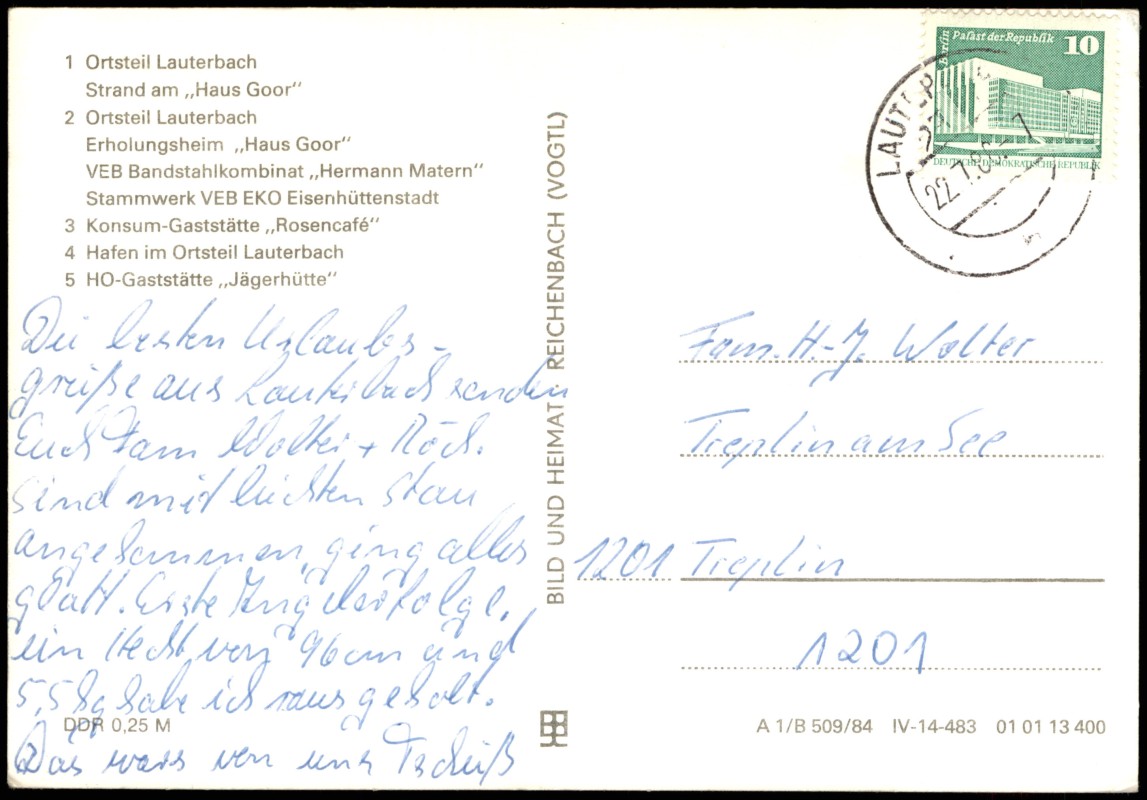 1 Ortsteil Lauterbach
Strand am „Haus Goor“
2 Ortsteil Lauterbach
Erholungsheim „Haus Goor“
VEB Bandstahlkombinat „Hermann Matern“
Stammwerk VEB EKO Eisenhüttenstadt
3 Konsum-Gaststätte „Rosencafé“
4 Hafen im Ortsteil Lauterbach
5 HO-Gaststätte „Jägerhütte“
Die besten Urlaubs-
grüße aus Lauterbach senden
Euch Fam Wolter +
Sind mit leichten Stau
angekommen, ging alles
glatt. Erste Angelerfolge,
ein Hecht von 96cm und
5,5 kg habe ich rausgeholt.
Das wars von uns Tschüß
DDR 0,25 M
BILD UND HEIMAT · REICHENBACH (VOGTL)
Berlin Palast der Republik 10
DEUTSCHE DEMOKRATISCHE REPUBLIK
22.7.
Fam. H-J. Wolter
Treplin am See
1201 Treplin
1201
A 1/B 509/84 IV-14-483 01 01 13 400